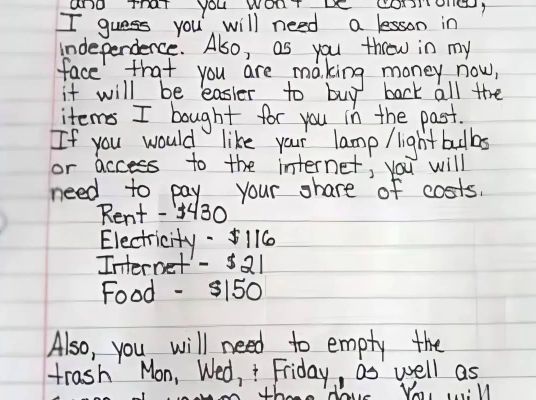 and that you won't be controlled,
I guess you will need a lesson in
independence. Also, as you threw in my
face that you are making money now,
it will be easier to buy back all the
items I bought for you in the past.
If you would like your lamp/lightbulbs
or access to the internet, you will
need to pay your share of costs.
Rent - $430
Electricity - $116
Internet - $21
Food - $150
Also, you will need to empty the
trash Mon, Wed, & Friday, as well as
those days. You will